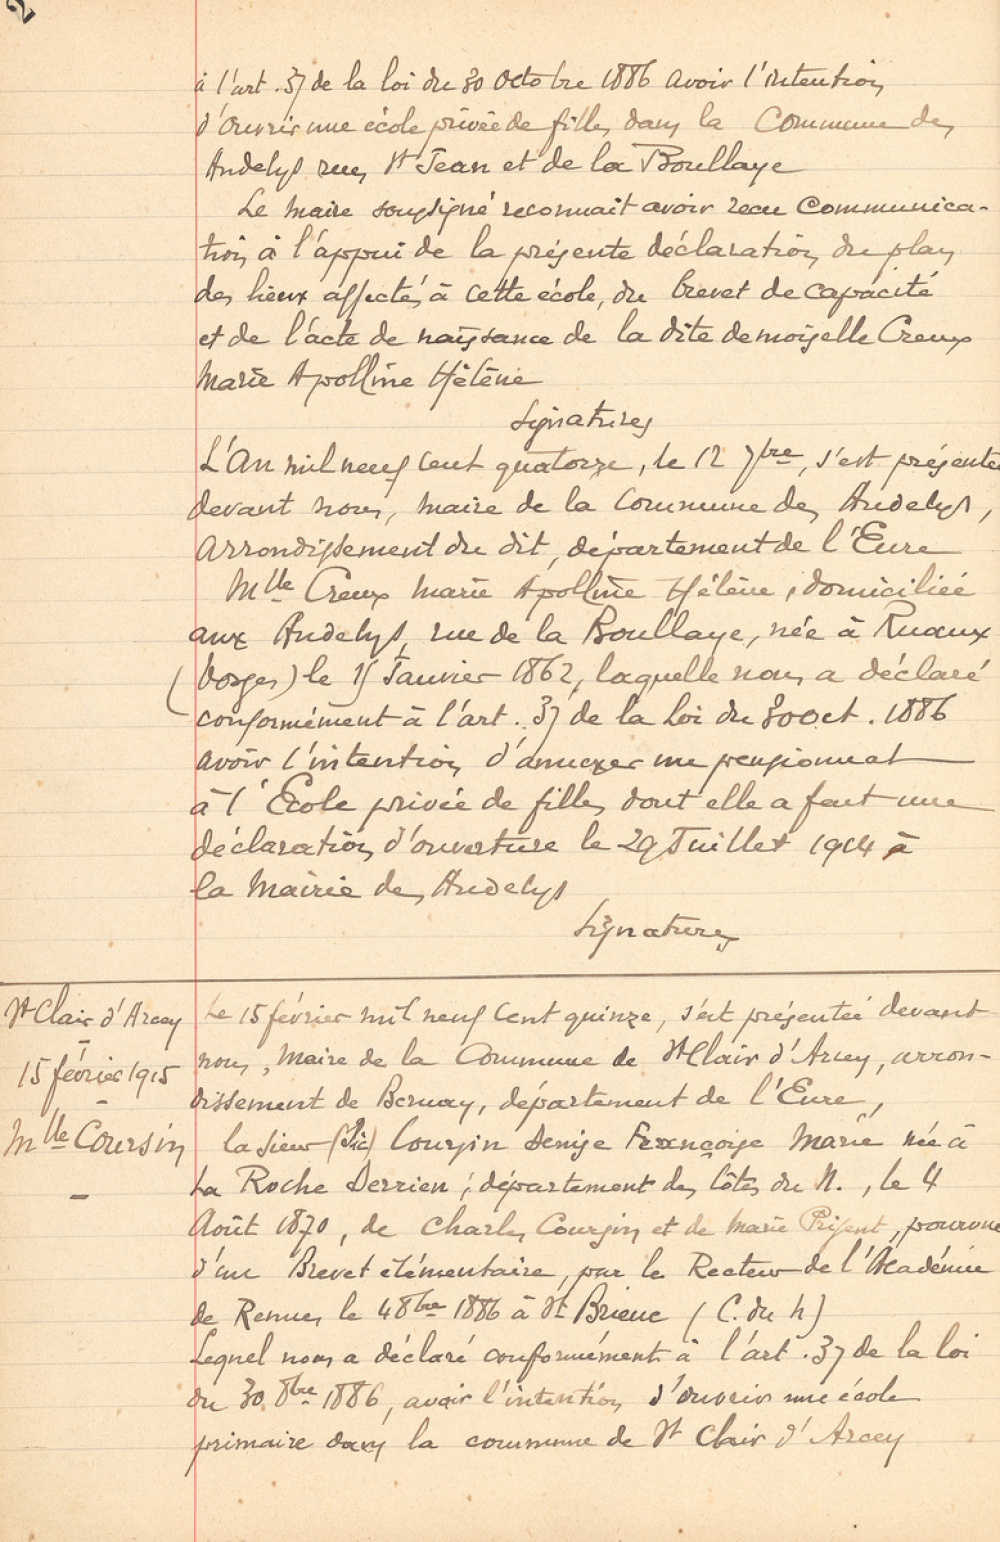 2
à l'art. 37 de la loi du 30 Octobre 1886 avoir l'intention
d'ouvrir une école privée de filles dans la Commune des
Andelys rues St Jean et de la Boullaye
Le Maire soussigné reconnait avoir recu Communica-
tion à l'appui de la présente déclaration du plan
des lieux affectés à cette école, du brevet de capacité
et de l'acte de naissance de la dite demoiselle Creux
Marie Apolline Hélène
Signatures
L'An mil neuf cent quatorze, le 12 7bre, s'est présentée
devant nous, maire de la Commune des Andelys,
Arrondissement du dit, département de l'Eure
Mlle Creux Marie Apolline Hélène, domiciliée
aux Andelys, rue de la Boullaye, née à Ruaux
(Vosges) le 15 Janvier 1862, laquelle nous a déclaré
conformément à l'art. 37 de la Loi du 30 Oct. 1886
avoir l'intention d'annexer un pensionnat
à l'École privée de filles dont elle a fait une
déclaration d'ouverture le 29 Juillet 1914 à
la Mairie des Andelys
Signatures
St Clair d'Arcey
15 février 1915
Mlle Coursin
Le 15 février mil neuf cent quinze, s'est présentée devant
nous, Maire de la Commune de St Clair d'Arcey, arron-
dissement de Bernay, département de l'Eure,
la sieur (sic) Coursin Denise Françoise Marie née à
La Roche Derrien, département des Côtes du N., le 4
Août 1870, de Charles Coursin et de Marie Prigent, pourvue
d'un Brevet élémentaire, par le Recteur de l'Académie
de Rennes le 4 8bre 1886 à St Brieuc (C. du N)
Lequel nous a déclaré conformément à l'art. 37 de la loi
du 30 8bre 1886, avoir l'intention d'ouvrir une école
primaire dans la commune de St Clair d'Arcey